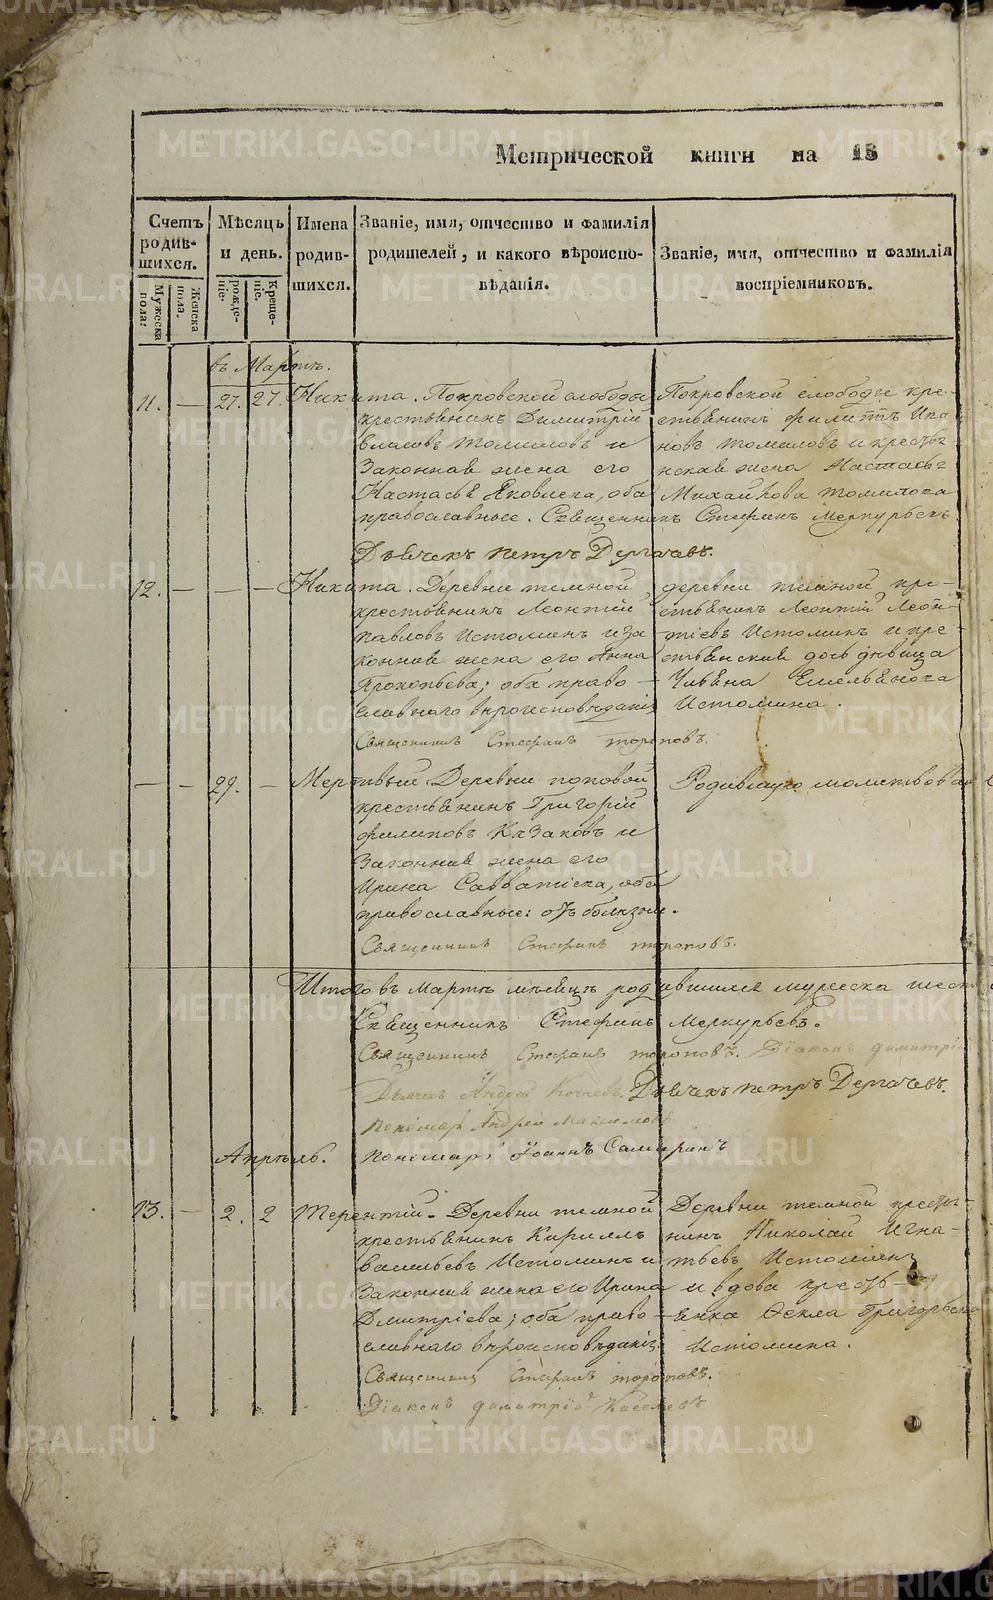 Метрической книги на 18
Счетъ родив-шихся.
Мужеска пола.
Женска пола.
Мѣсяцъ и день.
рожде-ніе.
Креще-ніе.
Имена родив-шихся.
Званіе, имя, отчество и фамилія
родителей, и какого вѣроиспо-
вѣданія.
Званіе, имя, отчество и фамилія
воспріемниковъ.
въ Мартѣ.
11. — 27. 27. Никита. Покровской слободы
крестьянинъ Димитрій
Власовъ Томиловъ и
Законная жена его
Настасья Яковлева, оба
православные. Священникъ Стефанъ Меркурьевъ
Дьячекъ Петръ Дергачевъ.
Покровской слободы кре-
стьянинъ Филиппъ Ива
новъ Томиловъ и крестья-
нская жена Настасья
Михайлова Томилова
12. — — — Никита. Деревни темной
крестьянинъ Леонтій
Павловъ Истоминъ и за
конная жена его Анна
Прокопьева; оба право-
славнаго вѣроисповѣданія
Священникъ Стефанъ тороповъ.
деревни темной кре-
стьянинъ Леонтій Леон
тіевъ Истоминъ и кре-
стьянская дочь дѣвица
Емельянова
Истомина.
— — 29. — Мертвый Деревни поповой
крестьянинъ Григорій
филиповъ Казаковъ и
Законная жена его
Ирина Савватіева, оба
православные:
Священникъ Стефанъ тороповъ.
Родившую молитвовал
Итого въ Мартѣ мѣсяцѣ родившихся мужеска
Священникъ Стефанъ Меркурьевъ.
Священникъ Стефанъ тороповъ. Діаконъ димитрі
Дьячекъ Андрей Дьячекъ Петръ Дергачевъ.
пономарь Андрей Максимовъ
Апрѣль. пономарь Іоаннъ
13. — 2. 2 Терентій. Деревни темной
крестьянинъ Кириллъ
васильевъ Истоминъ и
Законная жена его Ирина
Дмитріева; оба право-
славнаго вѣроисповѣданія
Священникъ Стефанъ тороповъ.
Діаконъ димитрій Киселевъ
Деревни темной крестья-
нинъ Николай Игна-
тьевъ Истоминъ
и вдова кресть-
янка Ѳекла Григорьева
Истомина.